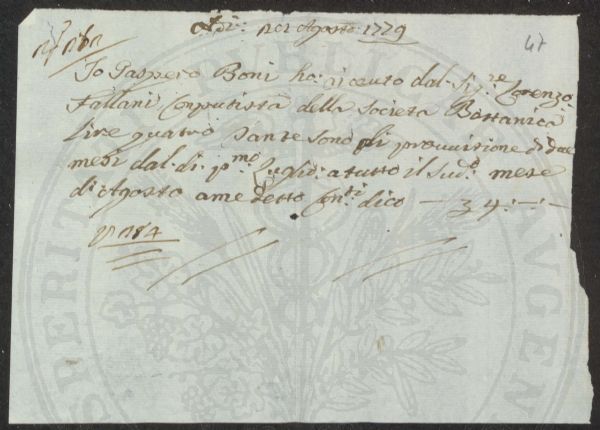 Adì: Agosto: 1779
47
Io Gaspero Boni ho: riceuto dal: Sig.re Lorenzo
Fallani Computista della Società Bottanica
lire quatro tante sono p. provvisione di due
mesi dal: dì: p.mo Luglio: a tutto il Sud.o mese
di: Agosto a me detto Con.ti dico — 4: —: —
PERITATI PVBLICAE AVGEN